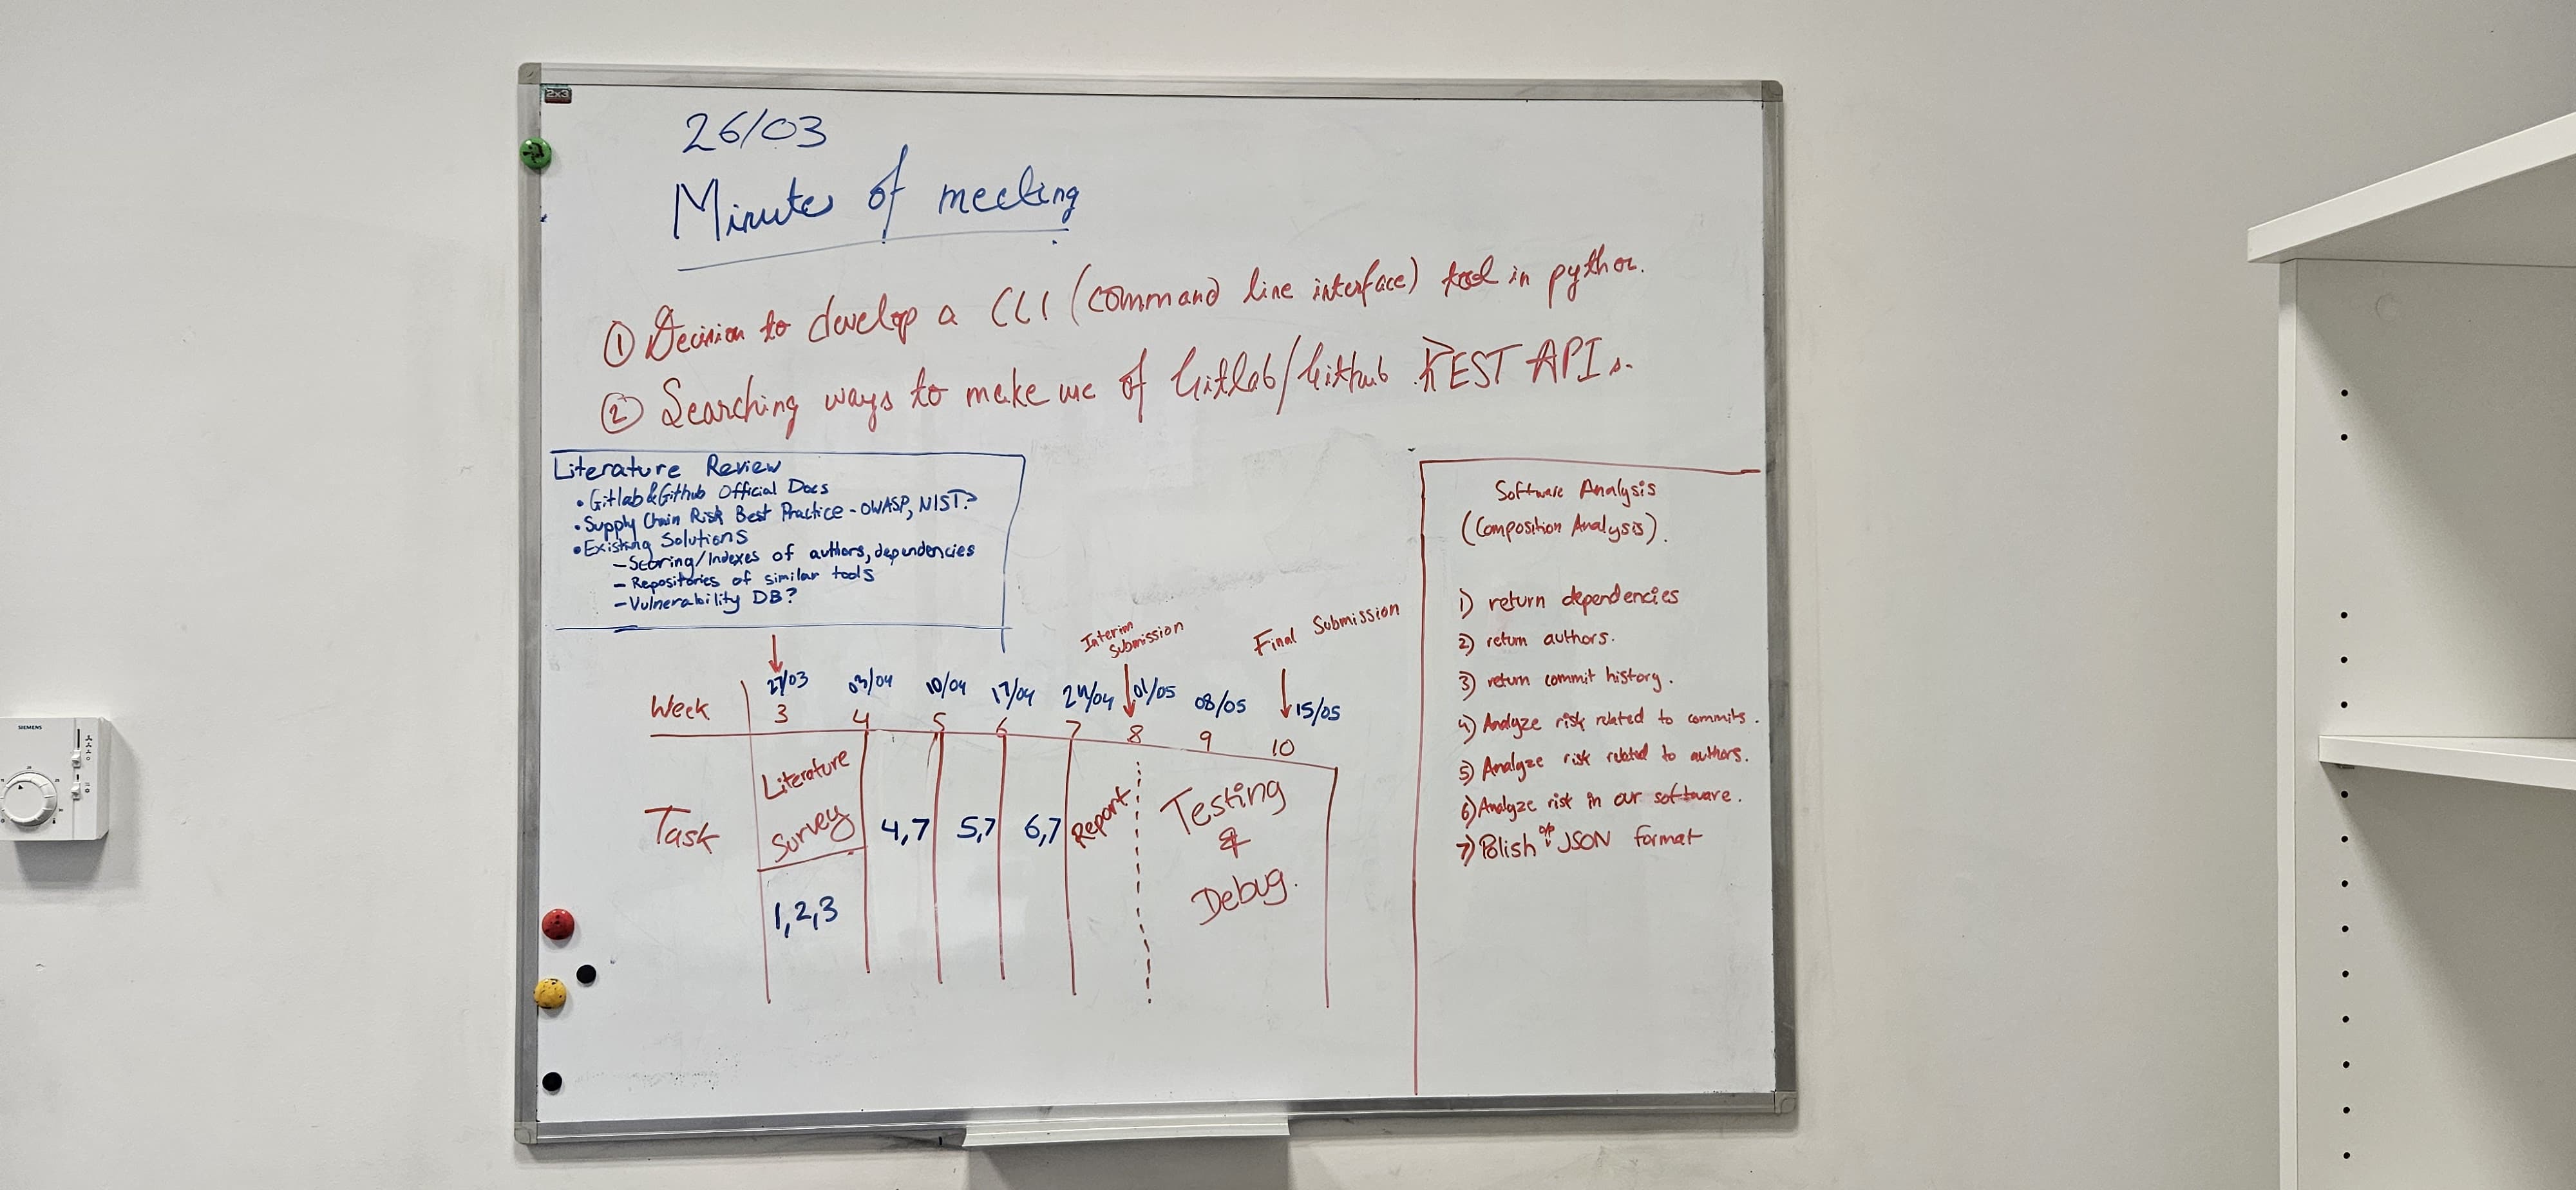 2x3
26/03
Minutes of meeting
① Decision to develop a CLI (command line interface) tool in python.
② Searching ways to make use of Gitlab/Github REST APIs.
Literature Review
• Gitlab & Github Official Docs
• Supply Chain Risk Best Practice - OWASP, NIST?
• Existing Solutions
- Scoring/Indexes of authors, dependencies
- Repositories of similar tools
- Vulnerability DB?
Interim
Submission
Final Submission
27/03 03/04 10/04 17/04 24/04 01/05 08/05 15/05
Week 3 4 5 6 7 8 9 10
Task
Literature
Survey
1,2,3
4,7
5,7
6,7
Report
Testing
&
Debug.
Software Analysis
(Composition Analysis).
1) return dependencies
2) return authors.
3) return commit history.
4) Analyze risk related to commits.
5) Analyze risk related to authors.
6) Analyze risk in our software.
7) Polish o/p JSON format
SIEMENS